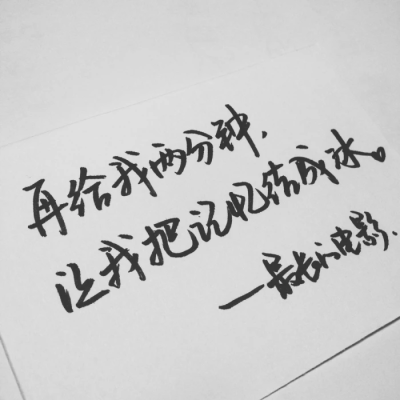 再给我两分钟，
让我把记忆结成冰。
—最长的电影.